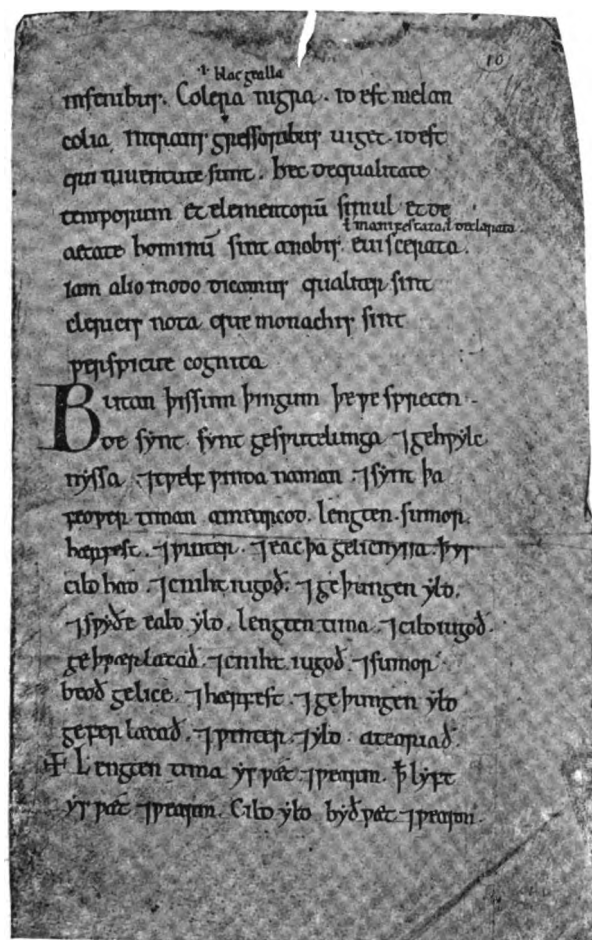 10
·i· blac gealla
insenibus. Colera nigra. id est melan
colia intransgressoribus uiget. id est
qui iuuentute sunt. hec dequalitate
temporum et elementorū simul et de
ł manifestata, ł declarata.
aetate hominū sint anobis euiscerata.
Iam alio modo dicamus qualiter sint
clericis nota que monachis sint
perspicue cognita
Butan þissum þingum þe ƿe sprecen
de sẏnt. sẏnt gesƿutelunga ⁊ gehƿẏlc
nẏssa. ⁊ tƿelf ƿinda naman. ⁊ sẏnt þa
feoƿer timan amearcod. lengten. sumor.
hærfest. ⁊ ƿinter. ⁊ eac þa gelicnẏssa. þẏs
cild had. ⁊ cniht iugoð. ⁊ geþungen ẏld.
⁊ sƿẏðe eald ẏld. lengten tima. ⁊ cild iugoð.
geþƿærlæcað. ⁊ cniht iugoð. ⁊ sumor
beoð gelice. ⁊ hærfest. ⁊ geþungen ẏld
geferlæcað. ⁊ ƿinter. ⁊ ẏld. ateoriað.
✠ Lengten tima ẏs ƿæt. ⁊ ƿearm. ꝥ lẏft
ẏs ƿæt ⁊ ƿearm. Cild ẏld bẏð ƿæt ⁊ ƿearm.